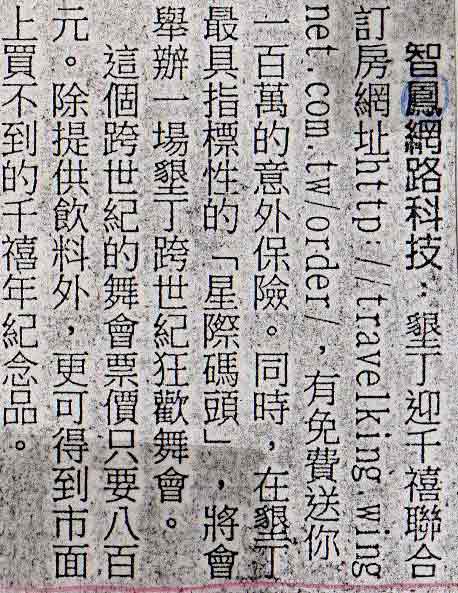 智鳳網路科技：墾丁迎千禧聯合
訂房網址http://travelking.wing
net.com.tw/order/，有免費送你
一百萬的意外保險。同時，在墾丁
最具指標性的「星際碼頭」，將會
舉辦一場墾丁跨世紀狂歡舞會。
這個跨世紀的舞會票價只要八百
元。除提供飲料外，更可得到市面
上買不到的千禧年紀念品。